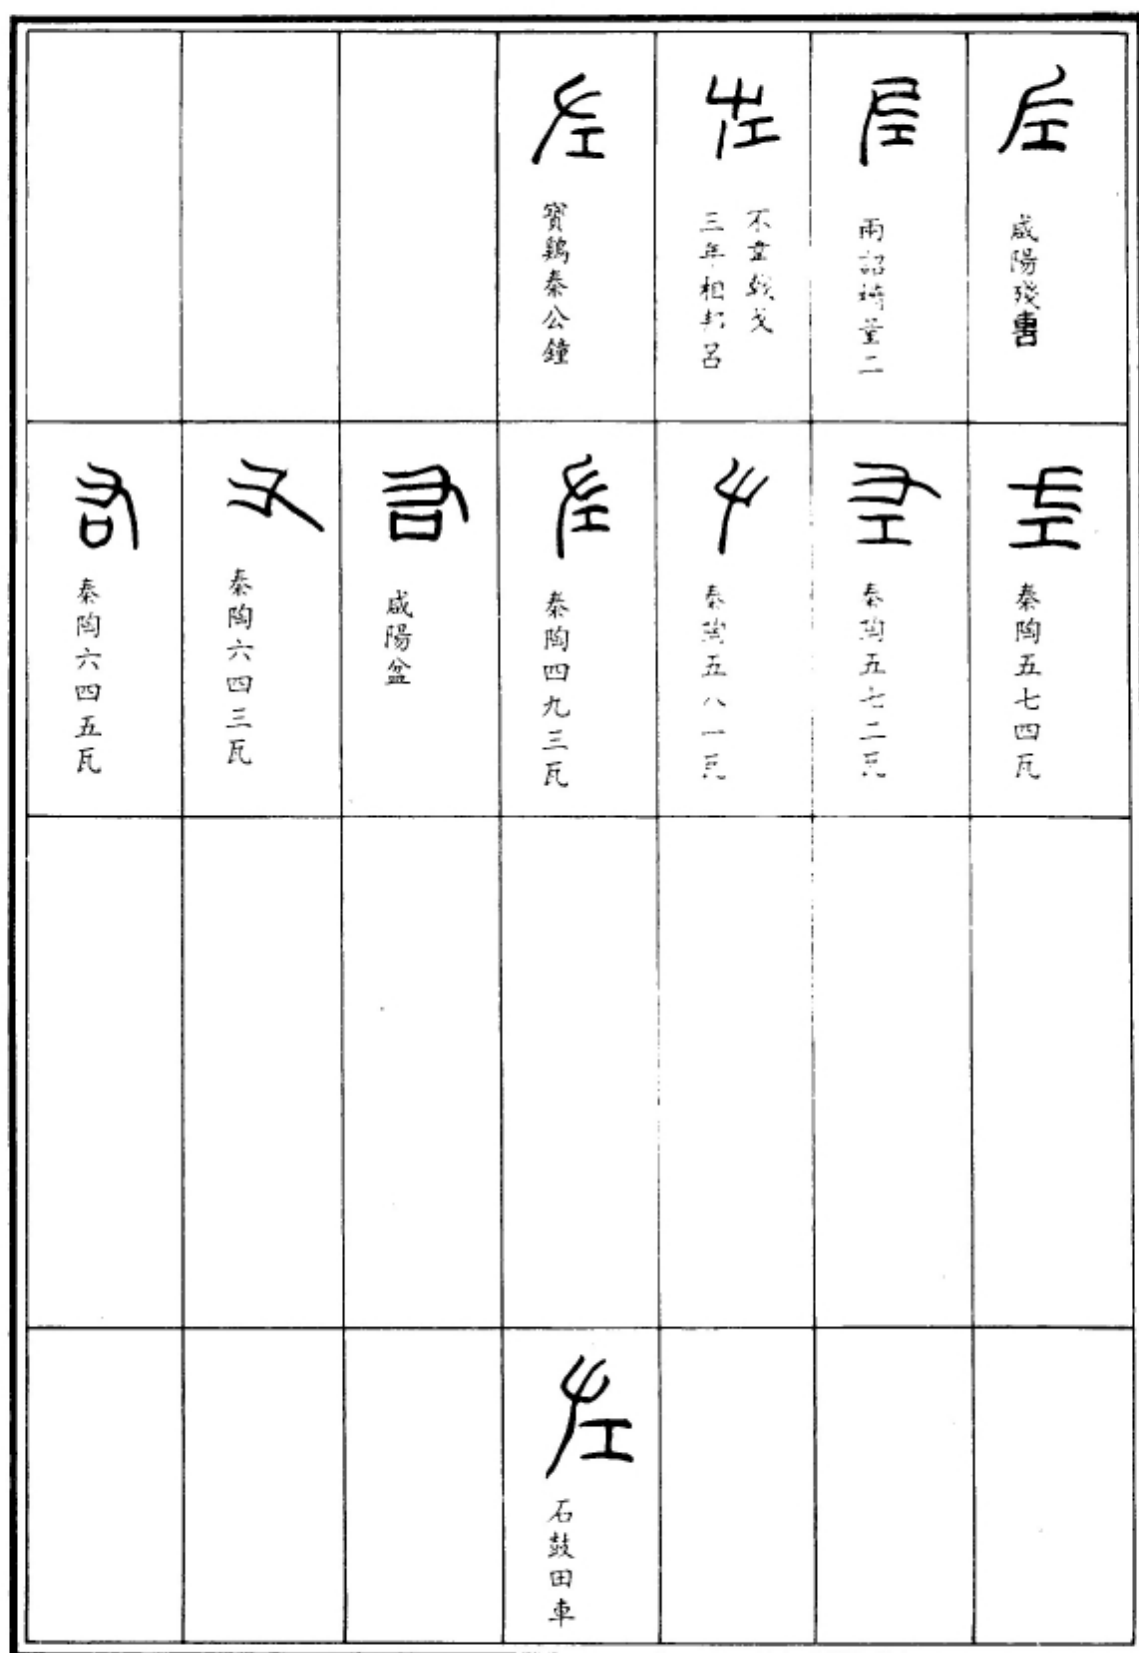 左
咸陽殘書
左
兩詔橢量二
左
三年相邦呂
不韋戟戈
左
寶鷄秦公鐘
左
秦陶五七四瓦
左
秦陶五七二瓦
秦陶五八一瓦
左
秦陶四九三瓦
右
咸陽盆
又
秦陶六四三瓦
右
秦陶六四五瓦
左
石鼓田車